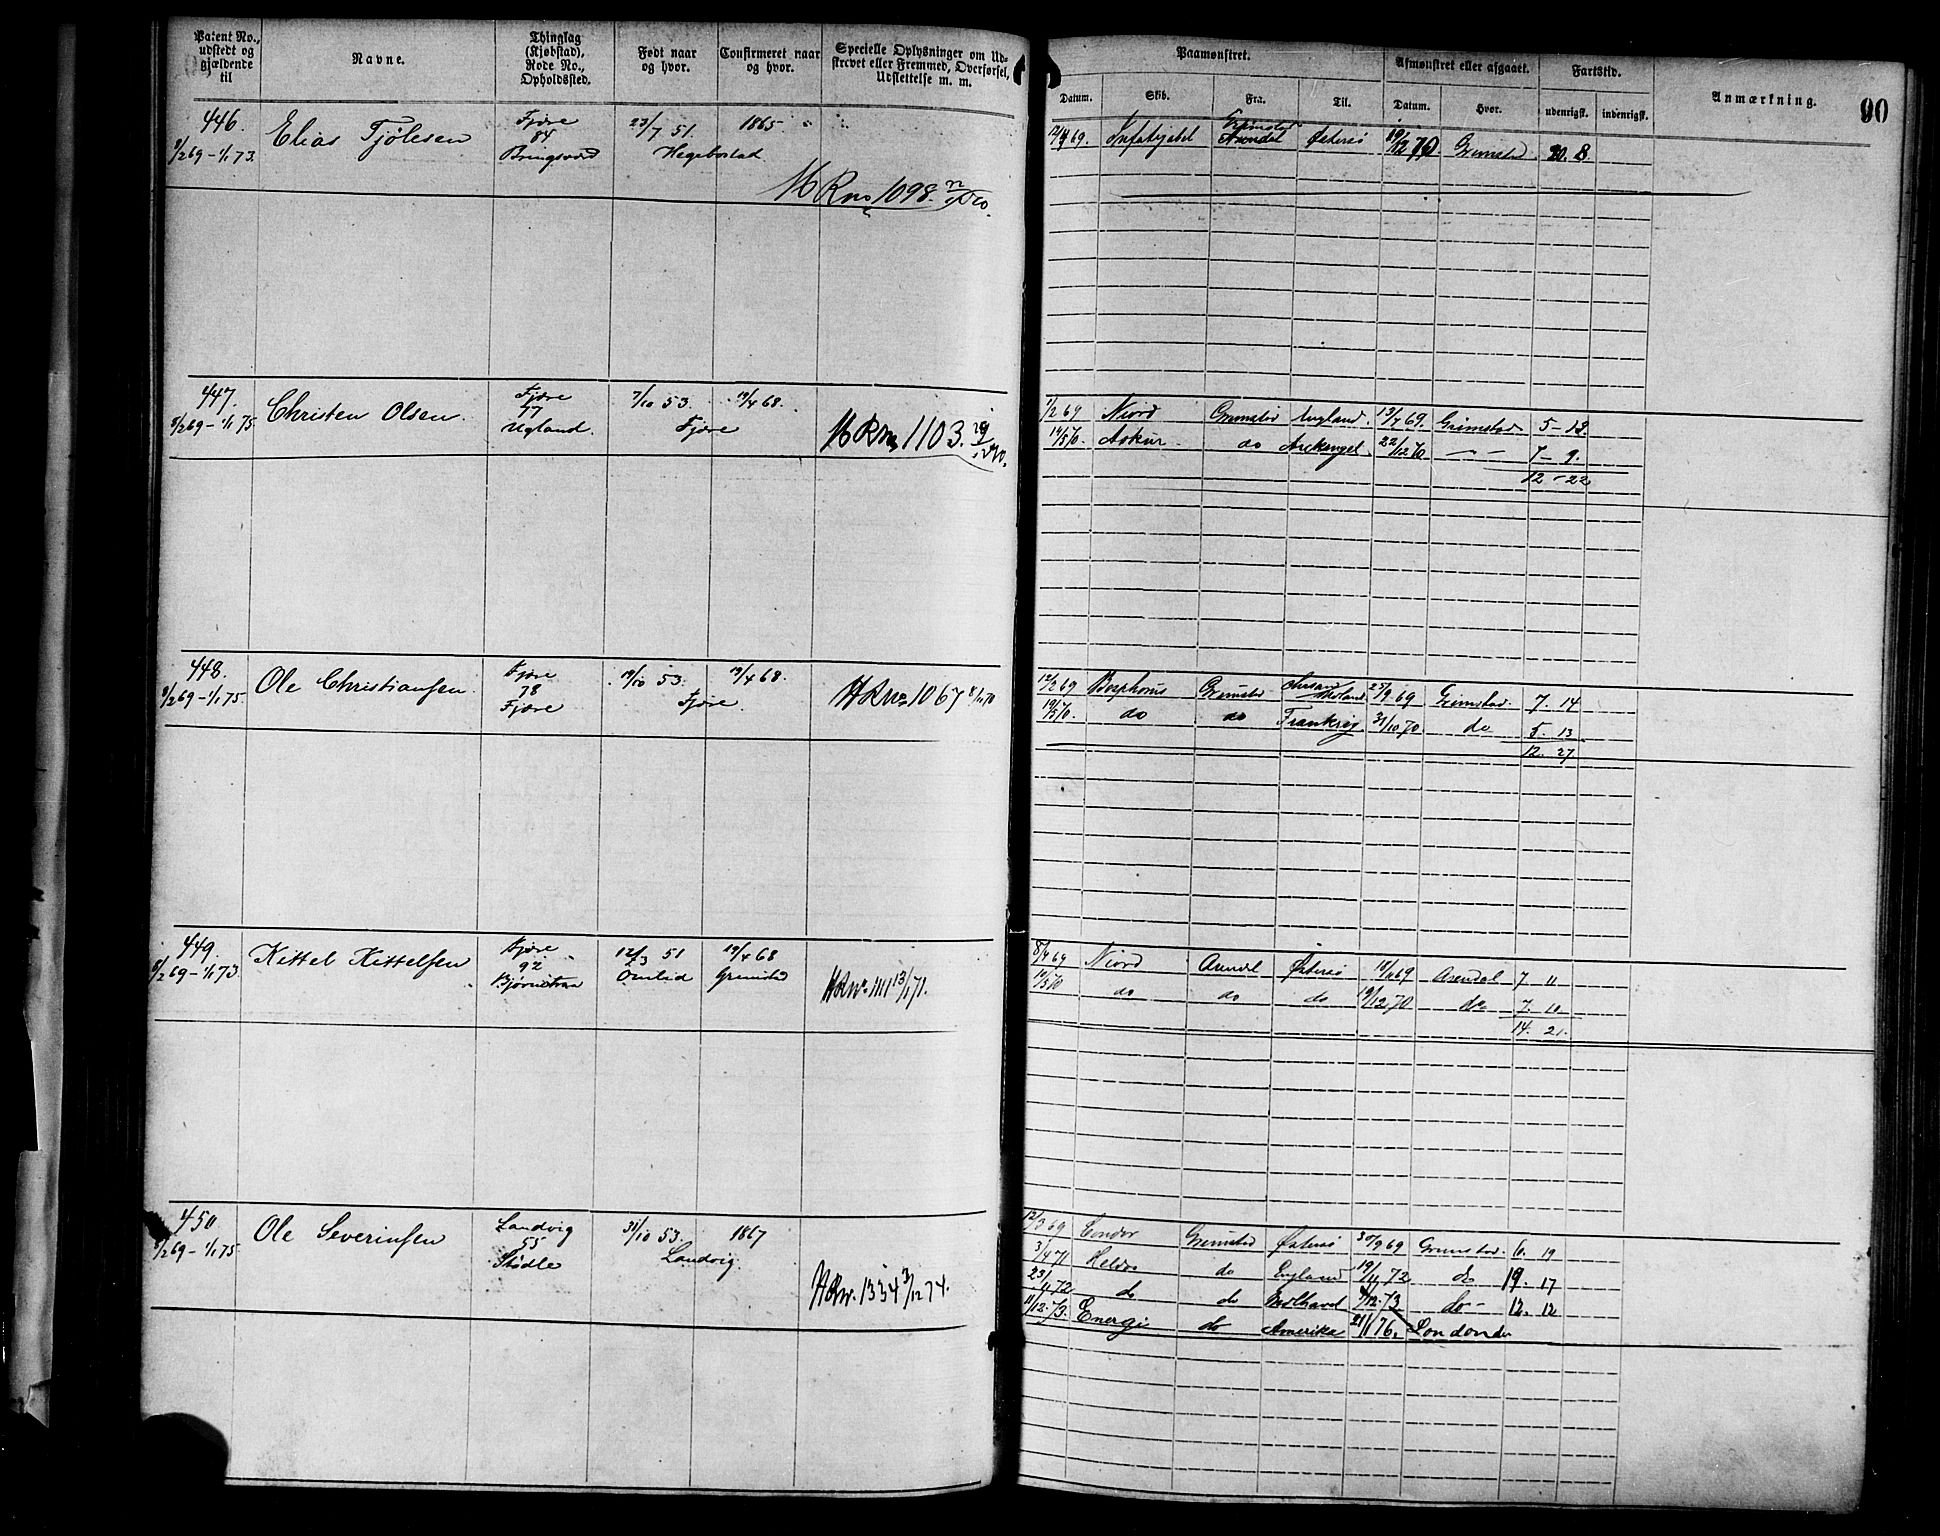 Patent No., udstedt og gjældende til
Navne.
Thinglag (Kjøbstad), Rode No., Opholdssted.
Født naar og hvor.
Confirmeret naar og hvor.
Specielle Oplysninger om Udskrevet eller Fremmed, Overførsel, Udslettelse m. m.
Paamønstret.
Afmønstret eller afgaaet.
Fartstid.
Anmærkning.
90
Datum.
Skib.
Fra.
Til.
Datum.
Hvor.
udenrigsk.
indenrigsk.
446.
8/2 69 - 1/1 73.
Elias Tjølesen
Fjære
84
Bringsværd
23/7 51.
1865
Hegebostad
HRno 1098.
Grimstad
Arendal
Østersø
19/12 70
Grimstad
20. 8
447.
8/2 69 - 1/1 75
Christen Olsen.
Fjære
77
Ugland.
7/10 53.
19/4 68.
Fjære
HRno 1103.
1/2 69 Niord Grimstad England. 13/7 69. Grimstad 5 - 13.
14/5 70. Askur. do Arckangel. 22/12 70 - - 7 - 9.
12 - 22
448.
8/2 69 - 1/1 75.
Ole Christiansen.
Fjære
78
Fjære
19/10 53.
19/4 68.
Fjære.
HRno 1067 8/11 70
12/2 69 Bosphorus Grimstad 27/9 69 Grimstad. 7. 14
19/5 70. do do Frankrig 31/10 70 do 5. 13
12. 27
449.
8/2 69 - 1/1 73.
Kittel Kittelsen
Fjære
92
12/3 51
Omlid
19/4 68
Grimstad
HRno 1111 13/1 71.
8/4 69 Niord Arendal Østersø 10/11 69 Arendal 7 11
10/5 70 do do do 19/12 70 do 7. 10
14. 21.
450
8/2 69 - 1/1 75.
Ole Severinsen
Landvig
55
Stødle
31/10 53.
1867
Landvig.
HRno. 1334 3/12 74.
12/3 69 Grimstad Østersø 30/9 69 Grimstad. 6. 19
3/4 71 Heldos do England 19/11 72 do 19. 17
23/11 72 do do 9/12 73 do - 12. 12
11/12 73. Energi do Amerika 21/1 76.